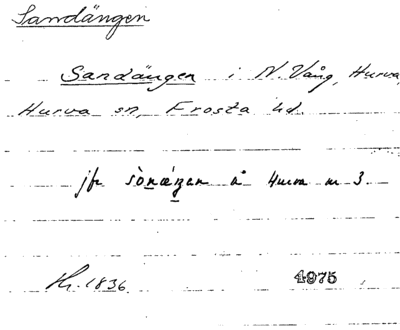 Sandängen
Sandängen i N. Vång, Hurva,
Hurva sn, Frosta hd.
jfr sònǽŋen å Hurva nr 3.
Hr. 1836. 4975